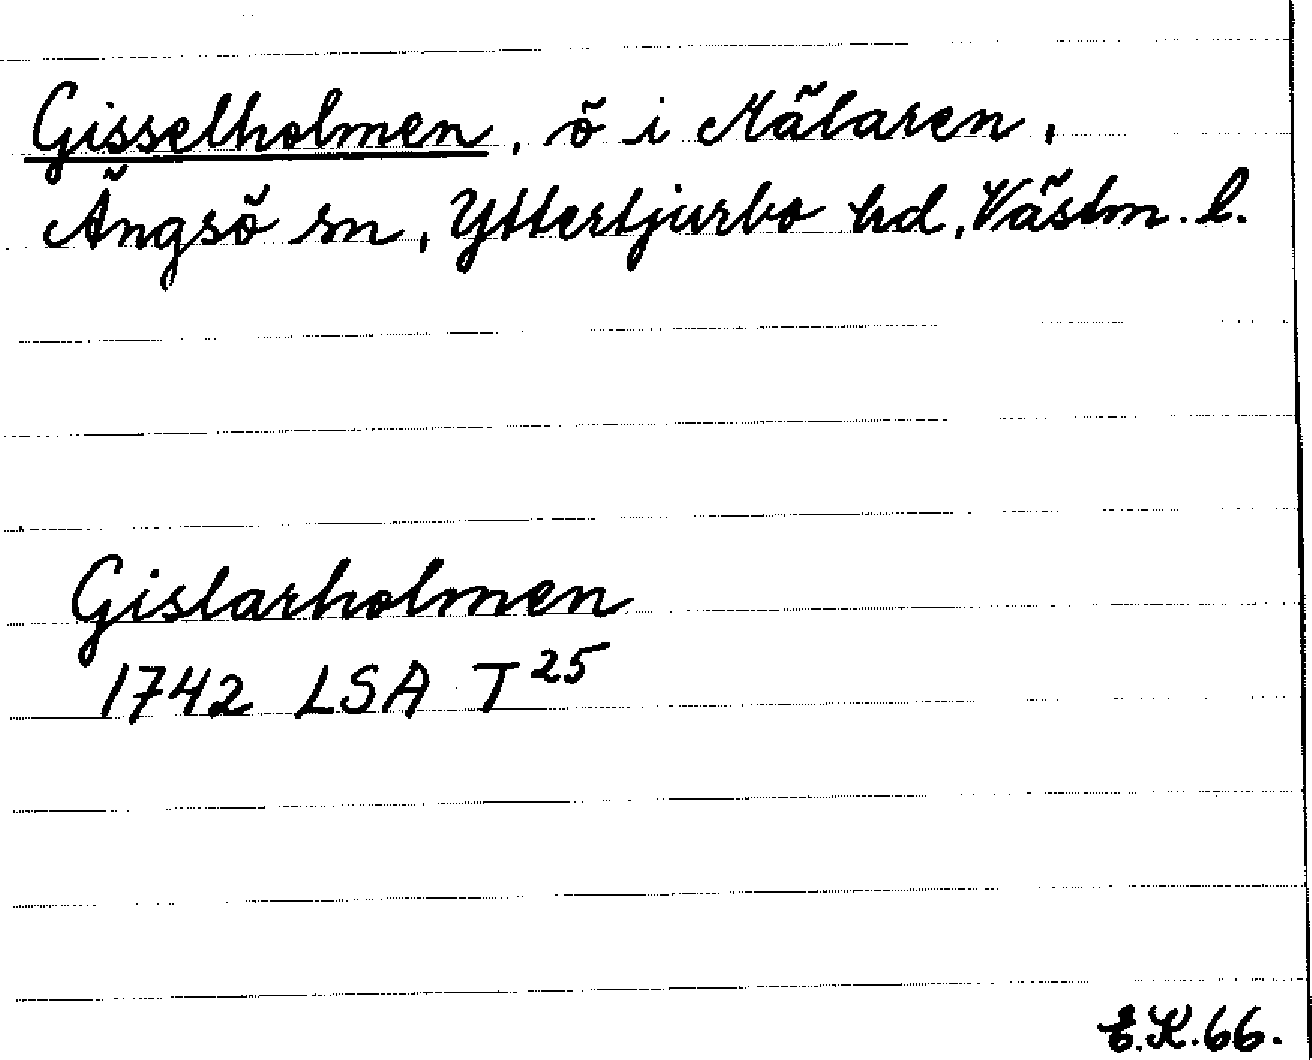 Gisselholmen, ö i Mälaren,
Ängsö sn, Yttertjurbo hd, Västm. l.
Gislarholmen
1742 LSA T 25
E.K.66.